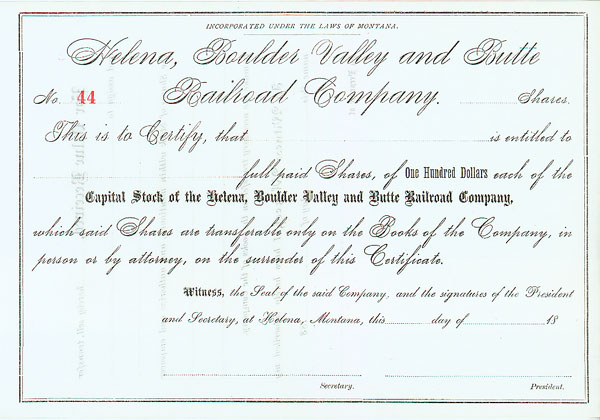 INCORPORATED UNDER THE LAWS OF MONTANA.
Helena, Boulder Valley and Butte
No. 44 Railroad Company. Shares.
This is to Certify, that is entitled to
full paid Shares, of One Hundred Dollars each of the
Capital Stock of the Helena, Boulder Valley and Butte Railroad Company,
which said Shares are transferable only on the Books of the Company, in
person or by attorney, on the surrender of this Certificate.
Witness, the Seal of the said Company, and the signatures of the President
and Secretary, at Helena, Montana, this day of 18
Secretary. President.